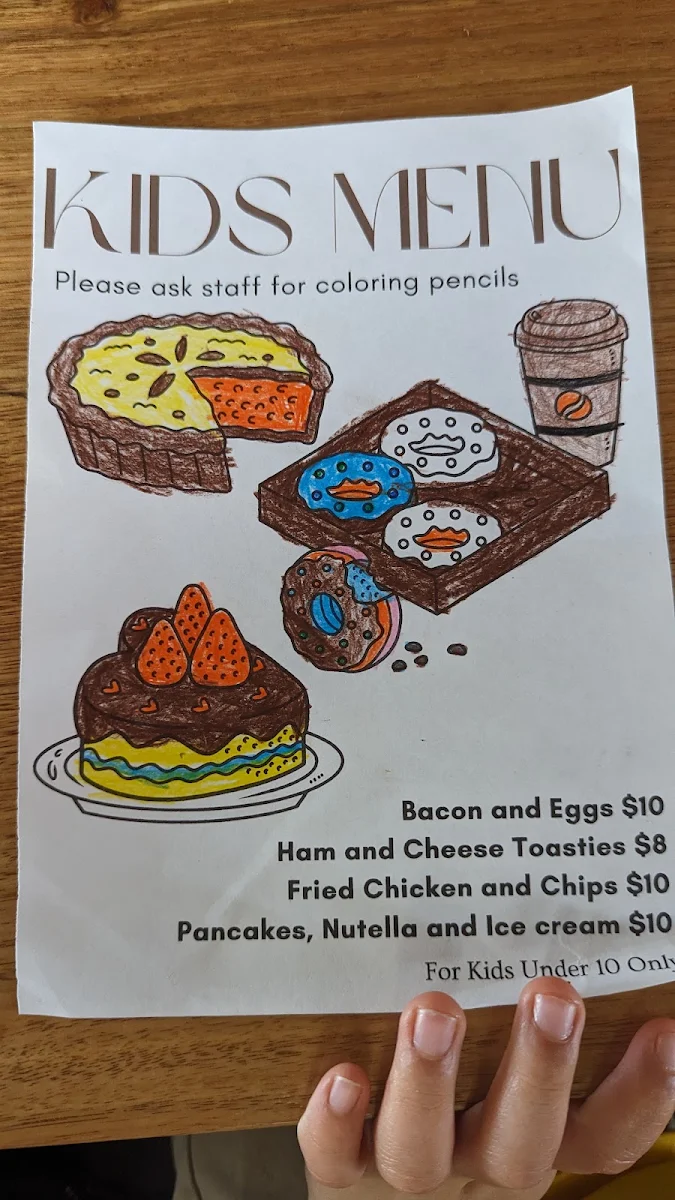 KIDS MENU
Please ask staff for coloring pencils
Bacon and Eggs $10
Ham and Cheese Toasties $8
Fried Chicken and Chips $10
Pancakes, Nutella and Ice cream $10
For Kids Under 10 Only